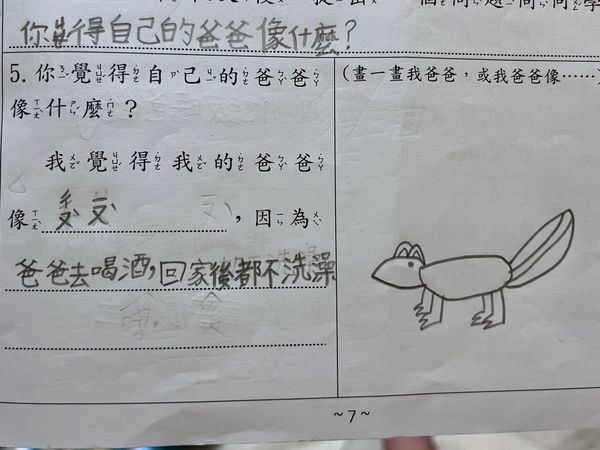 個問題問同學
你覺得自己的爸爸像什麼?
5. 你覺得自己的爸爸
像什麼？
我覺得我的爸爸
像ㄔㄡˋㄧㄡˋ，因為
爸爸去喝酒，回家後都不洗澡
(畫一畫我爸爸，或我爸爸像……)
~7~